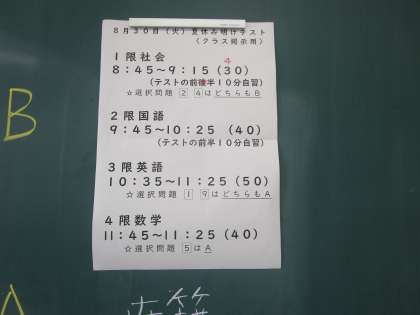 ８月３０日（火）夏休み明けテスト
（クラス掲示用）
１限社会
８：４５〜９：１５（３０）
4
（テストの前後半１０分自習）
☆選択問題 ２ ４はどちらもＢ
２限国語
９：４５〜１０：２５ （４０）
（テストの前半１０分自習）
３限英語
１０：３５〜１１：２５（５０）
☆選択問題 １ ９はどちらもＡ
４限数学
１１：４５〜１１：２５（４０）
☆選択問題 ５はＡ
B
A